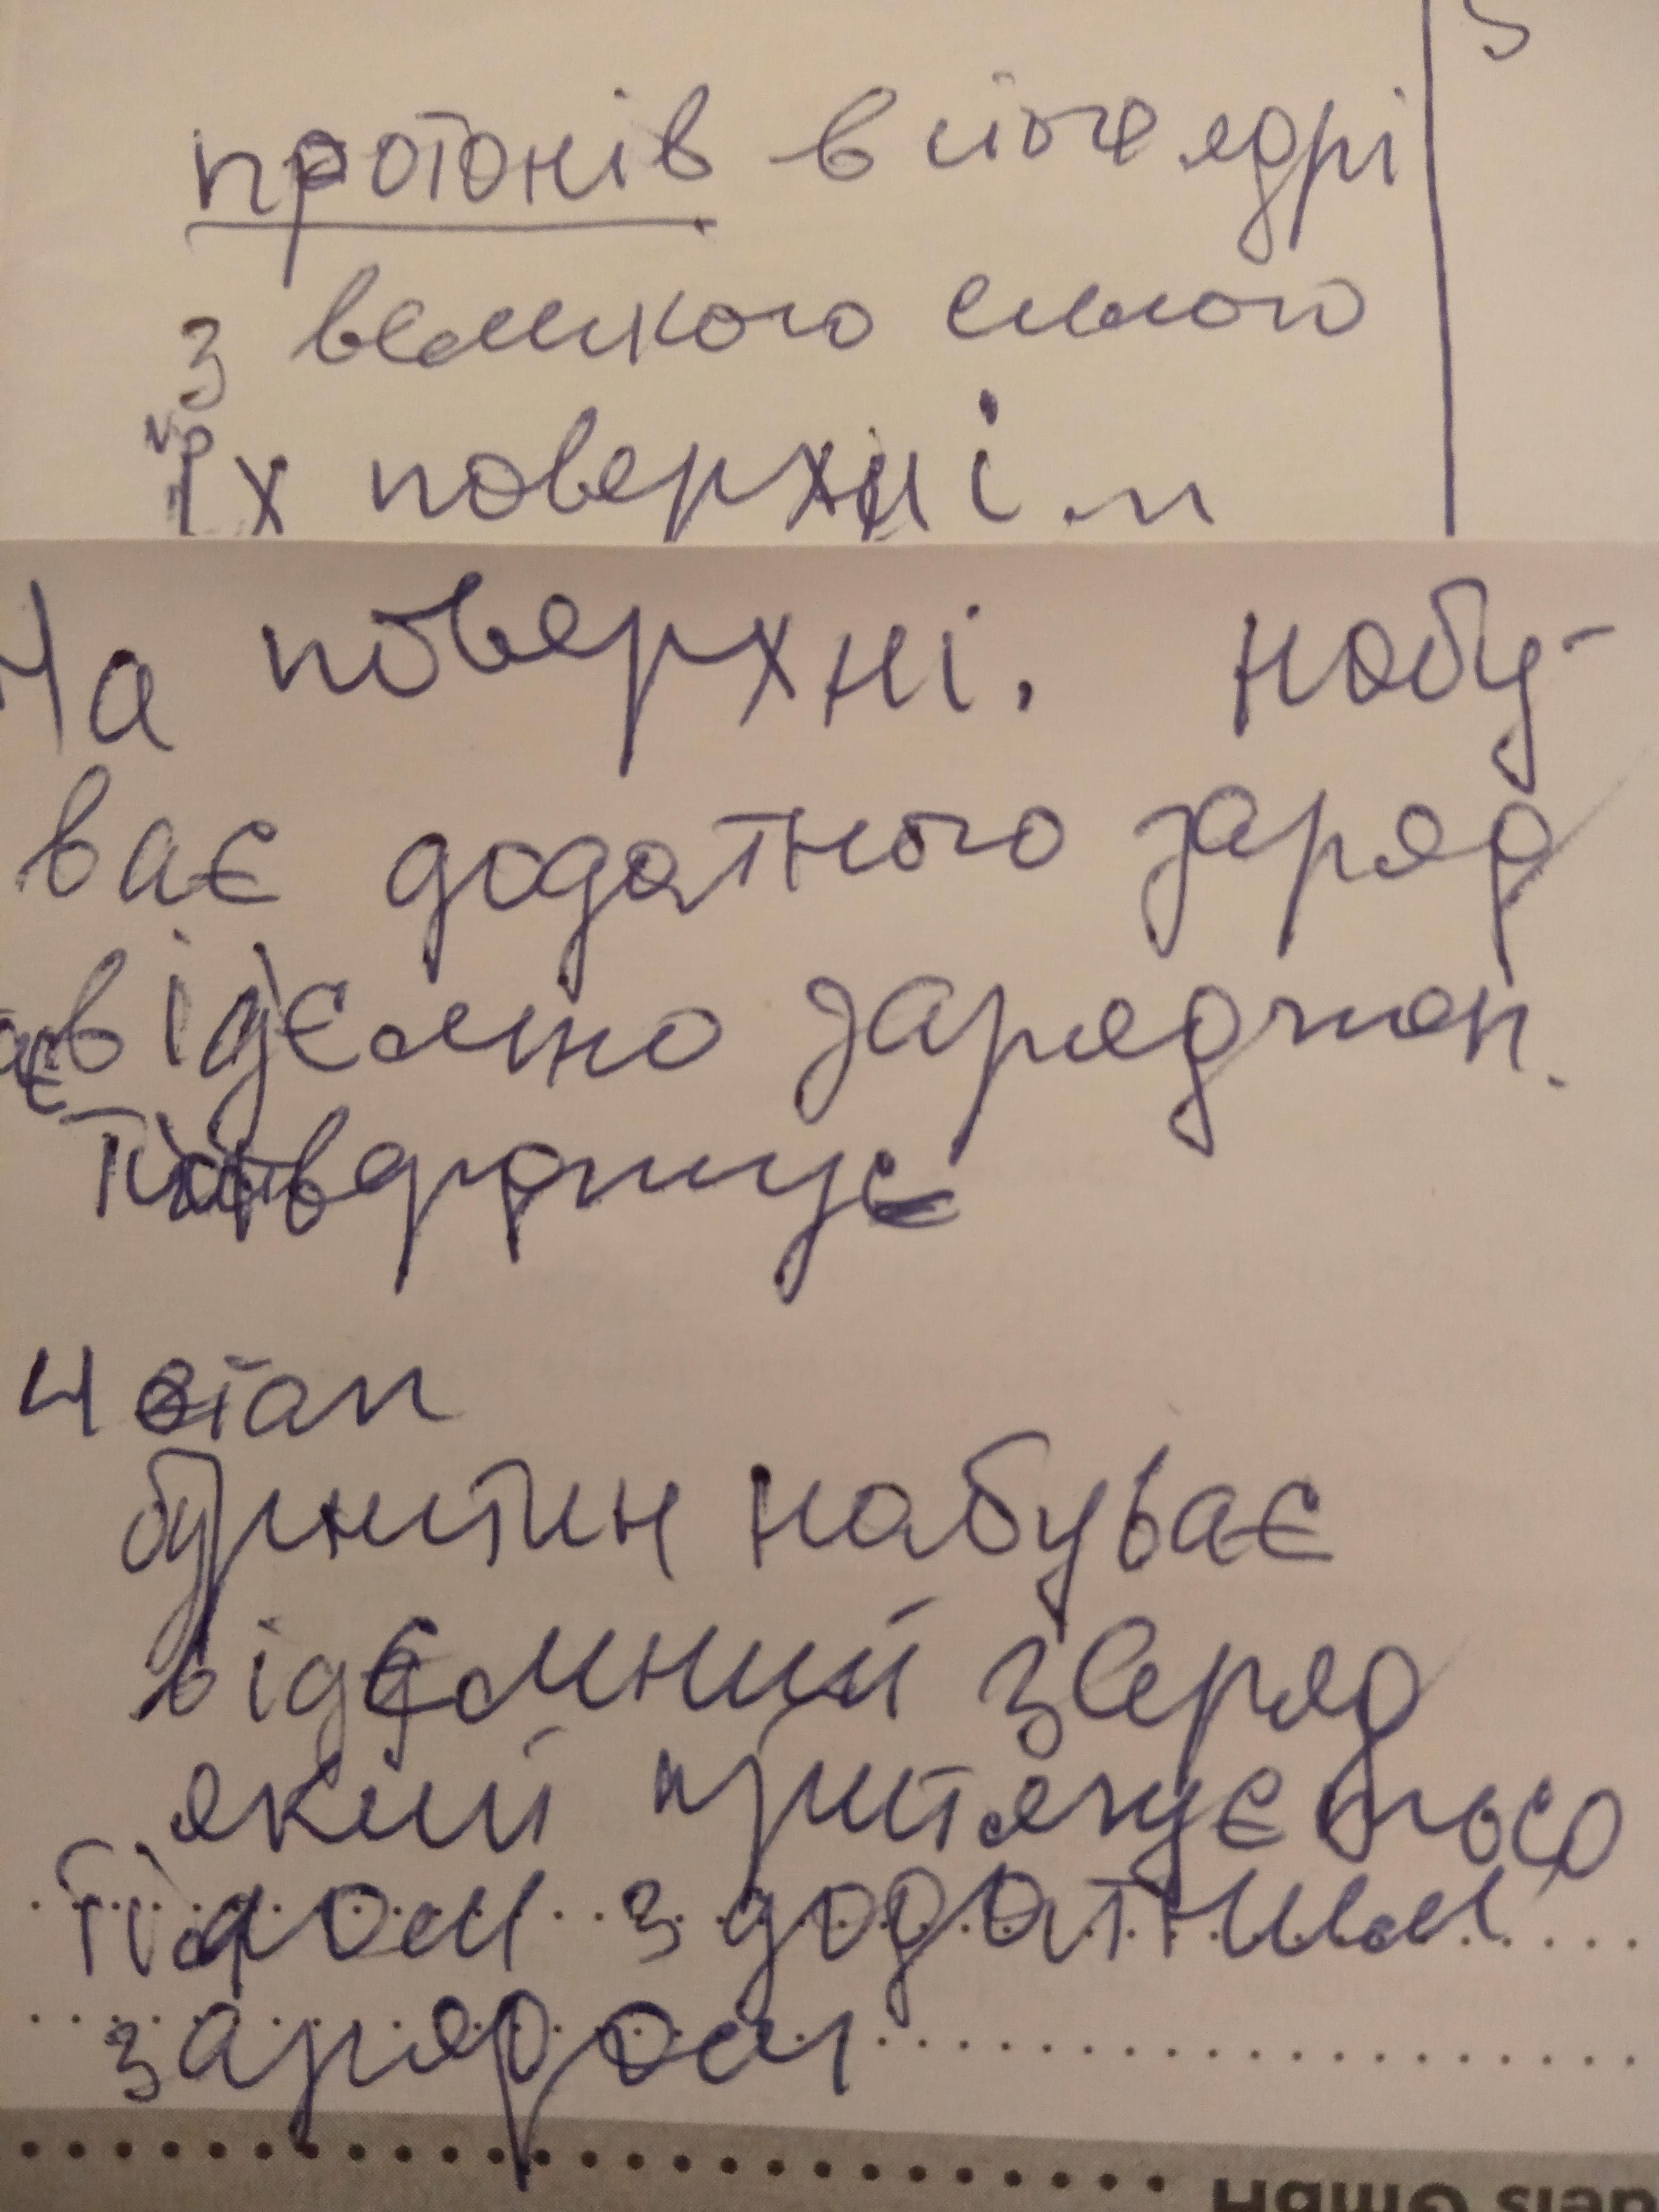 протонів в його ядрі
з великого силою
їх поверхні. п
На поверхні. набу-
ває додатного заряд
відємно заряджен.
4 етап
бурштин набуває
відємний заряд
який притягується
тілом з додатним
зарядом